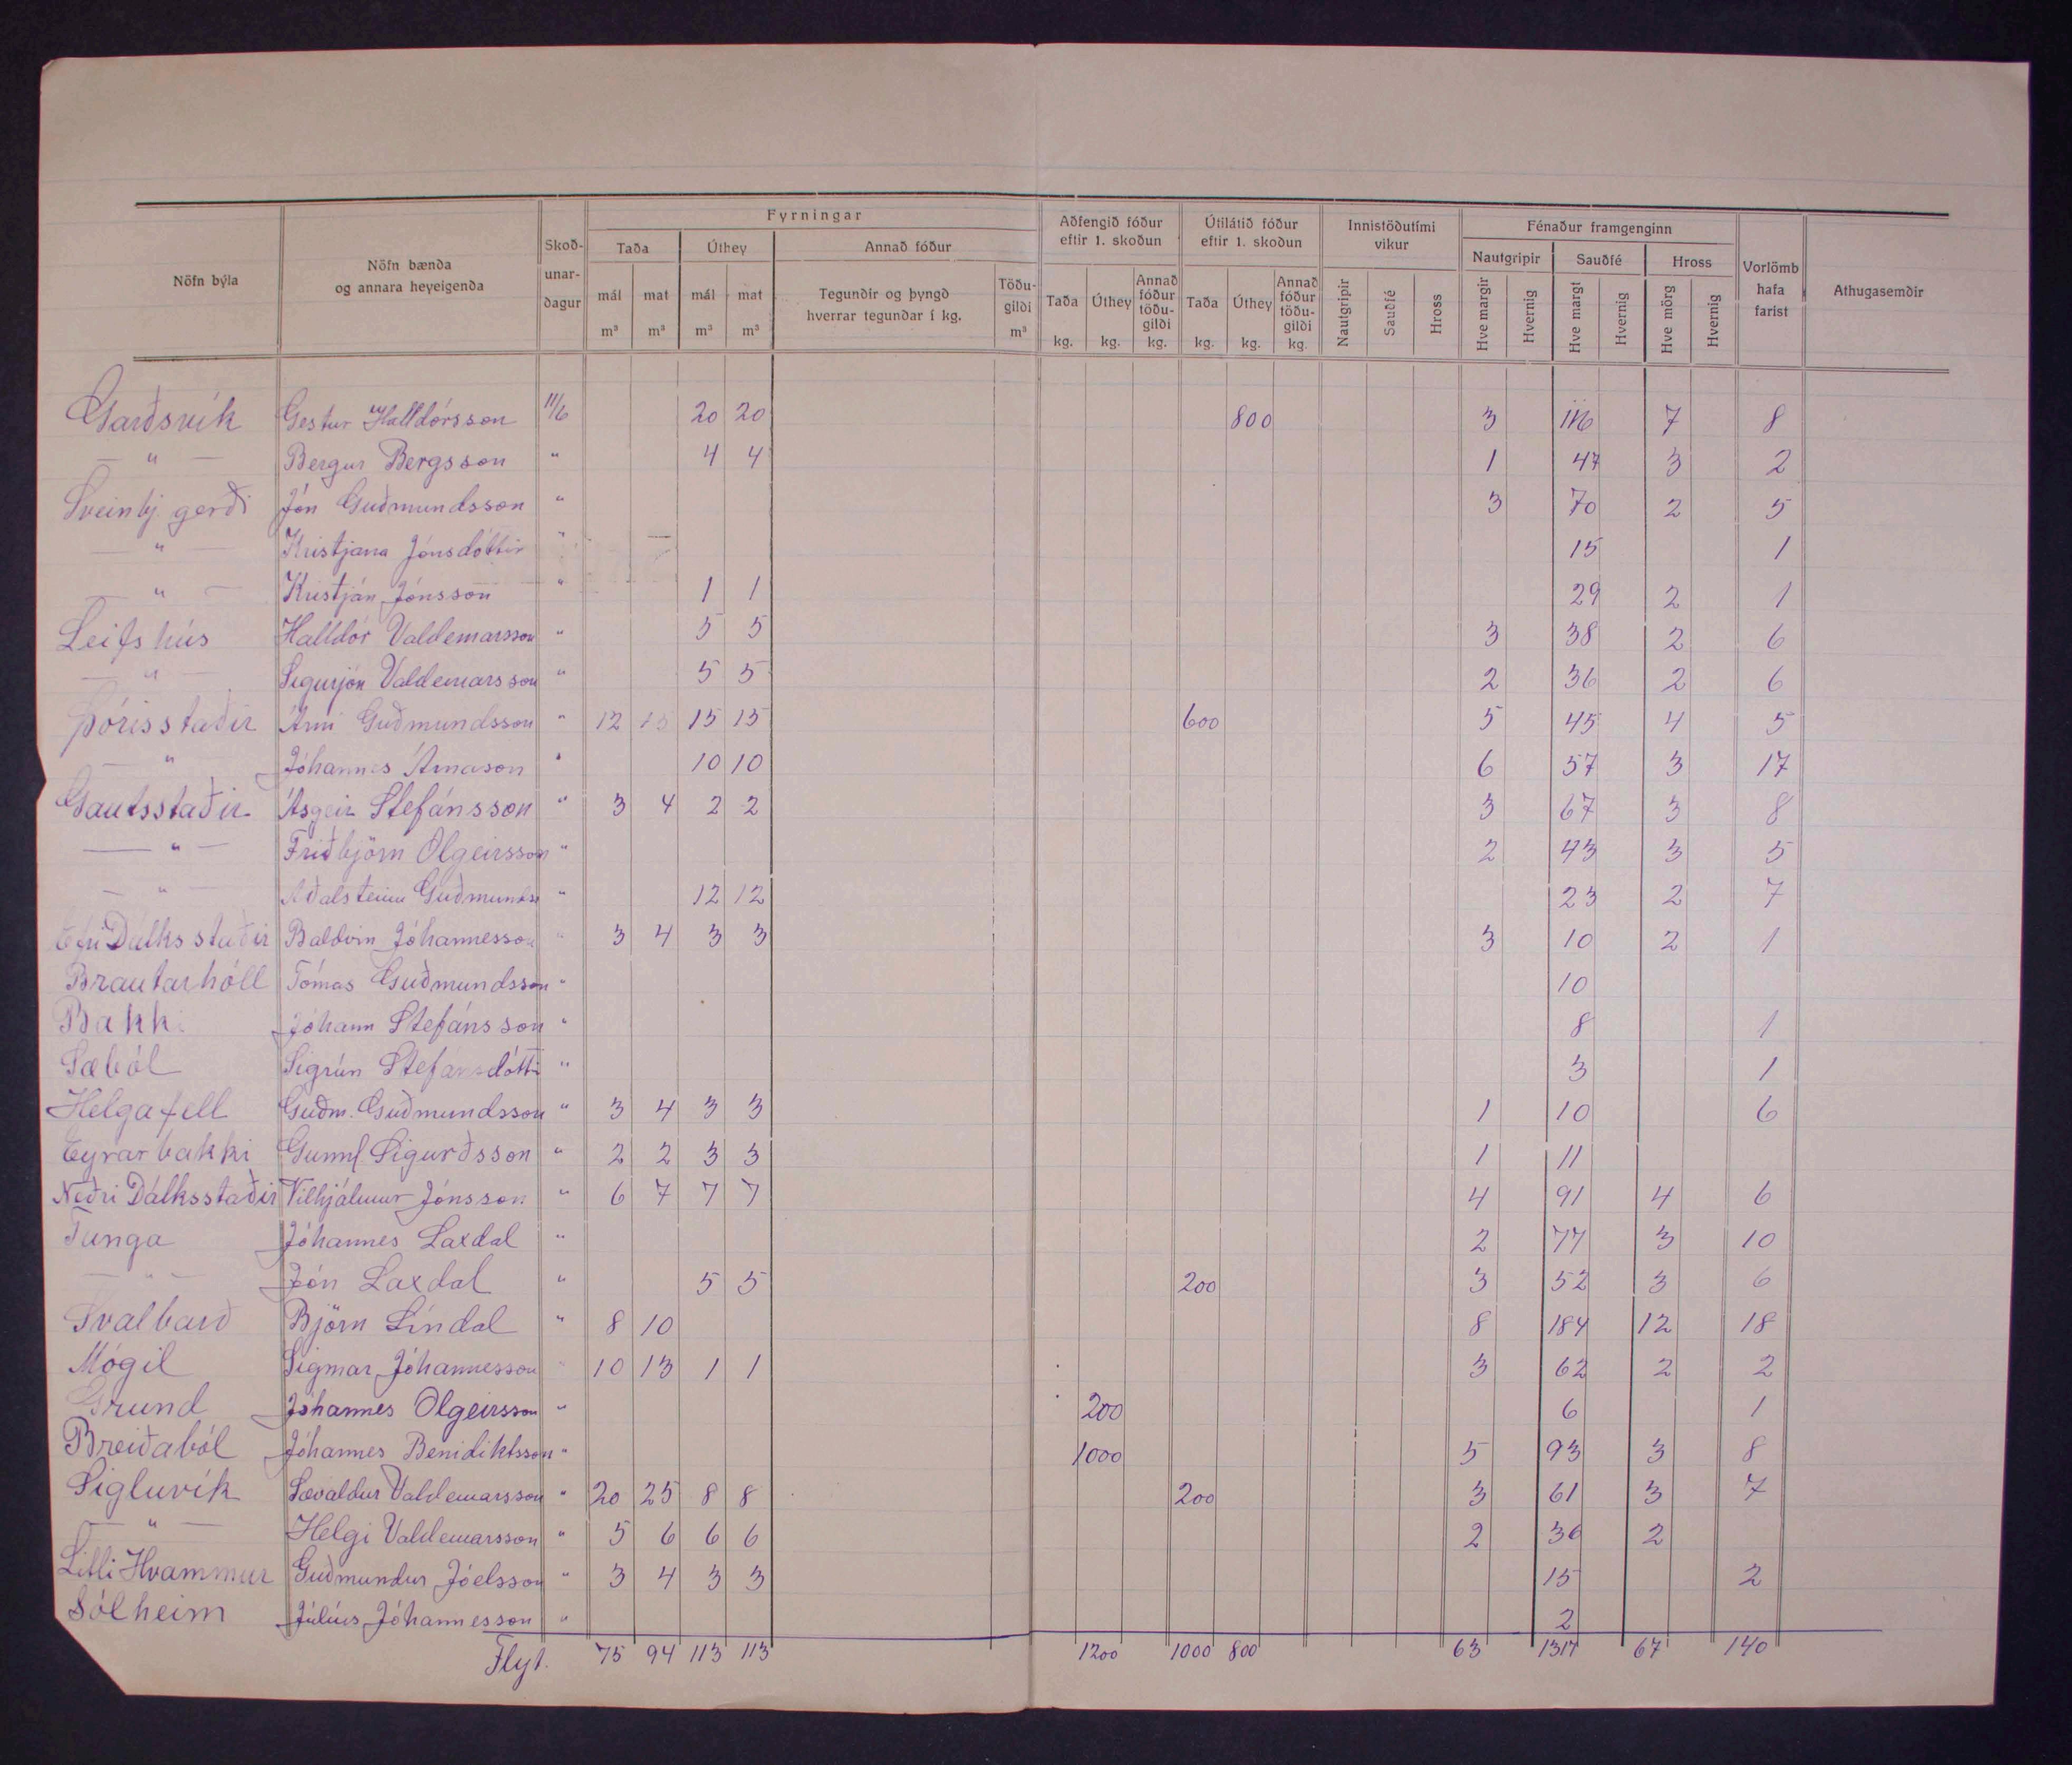 Fyrningar
Aðfengið fóður eftir 1. skoðun
Útilátið fóður eftir 1. skoðun
Innistöðutími vikur
Fénaður framgenginn
Nöfn býla
Nöfn bænda og annara heyeigenda
Skoðunardagur
Taða
Úthey
Annað fóður
Nautgripir
Sauðfé
Hross
Vorlömb hafa farist
Athugasemdir
mál m³ mat m³ mál m³ mat m³
Tegundir og þyngd hverrar tegundar í kg.
Töðugildi m³
Taða kg. Úthey kg. Annað fóður töðugildi kg.
Taða kg. Úthey kg. Annað fóður töðugildi kg.
Nautgripir Sauðfé Hross
Hve margir Hvernig Hve margt Hvernig Hve mörg Hvernig
Garðsvík Gestur Halldórsson 11/6 20 20 800 3 116 7 8
— " — Bergur Bergsson " 4 4 1 47 3 2
Sveinbj.gerði Jón Guðmundsson " 3 70 2 5
— " — Kristjana Jónsdóttir " — 15 1
— " — Kristján Jónsson " 1 1 29 2 1
Leifshús Halldór Valdemarsson " 5 5 3 38 2 6
— " — Sigurjón Valdemarsson " 5 5 2 36 2 6
Þórisstaðir Árni Guðmundsson " 12 15 15 15 600 5 45 4 5
— " Jóhannes Árnason " 10 10 6 57 3 17
Gautsstaðir Ásgeir Stefánsson " 3 4 2 2 3 67 3 8
— " — Friðbjörn Olgeirsson " 2 43 3 5
— " — Aðalsteinn Guðmundss " 12 12 23 2 7
Efri Dálksstaðir Baldvin Jóhannesson " 3 4 3 3 3 10 2 1
Brautarhóll Tómas Guðmundsson " 10
Bakki Jóhann Stefánsson " 8 1
Sæból Sigrún Stefánsdótti " 3 1
Helgafell Guðm. Guðmundsson " 3 4 3 3 1 10 6
Eyrarbakki Gunnl Sigurðsson " 2 2 3 3 1 11
Neðri Dálksstaðir Vilhjálmur Jónsson " 6 7 7 7 4 91 4 6
Tunga Jóhannes Laxdal " 2 77 3 10
— " — Jón Laxdal " 5 5 200 3 52 3 6
Svalbarð Björn Líndal " 8 10 8 184 12 18
Mógil Sigmar Jóhannesson " 10 13 1 1 3 62 2 2
Grund Jóhannes Olgeirsson " 200 6 1
Breiðaból Jóhannes Benidiktsson " 1000 5 93 3 8
Sigluvík Sævaldur Valdemarsson " 20 25 8 8 200 3 61 3 7
— " — Helgi Valdemarsson " 5 6 6 6 2 36 2
Litli Hvammur Guðmundur Jóelsson " 3 4 3 3 15 2
Sólheim Júlíus Jóhannesson " 2
Flyt. 75 94 113 113 1200 1000 800 63 1317 67 140